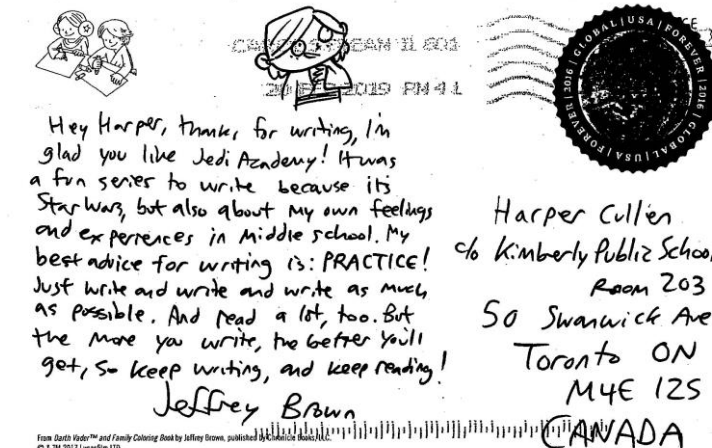 20 FEB 2019 PM 4 L
GLOBAL | USA | FOREVER | 2016 | GLOBAL | USA | FOREVER | 2016
Hey Harper, thanks for writing, I'm
glad you like Jedi Academy! It was
a fun series to write because its
Star Wars, but also about my own feelings
and experiences in middle school. My
best advice for writing is: PRACTICE!
Just write and write and write as much
as possible. And read a lot, too. But
the more you write, the better you'll
get, so keep writing, and keep reading!
Jeffrey Brown
Harper Cullen
c/o Kimberly Public School
Room 203
50 Swanwick Ave
Toronto ON
M4E 1Z5
CANADA
From Darth Vader™ and Family Coloring Book by Jeffrey Brown, published by Chronicle Books, LLC.
© & TM 2017 Lucasfilm LTD.